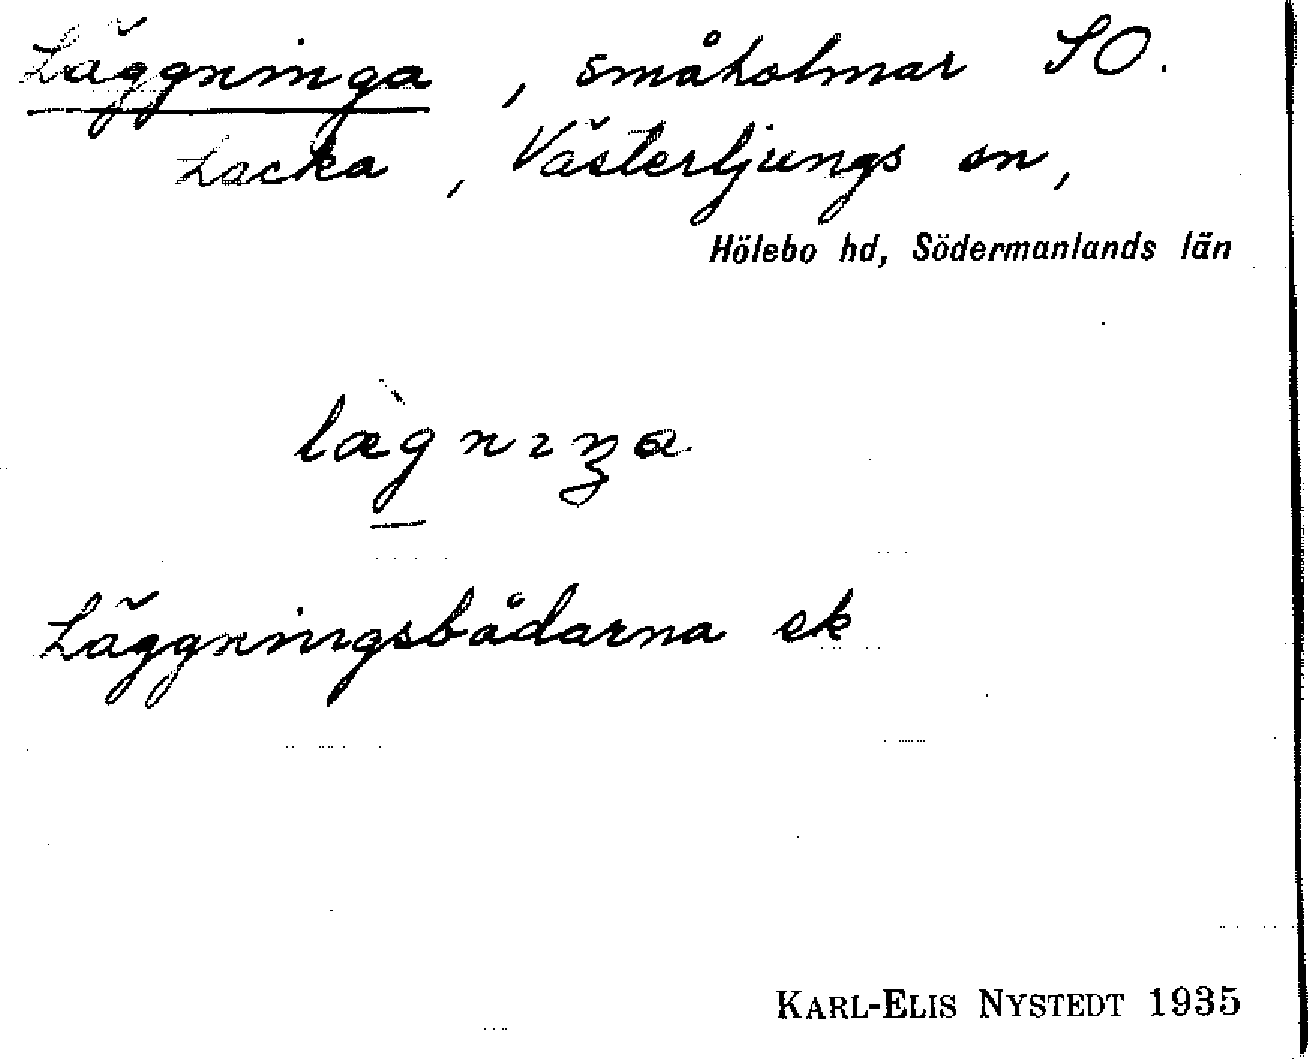 Läggninga, småholmar SO.
Lacka, Västerljungs sn,
Hölebo hd, Södermanlands län
Läggningsbådarna ek
KARL-ELIS NYSTEDT 1935